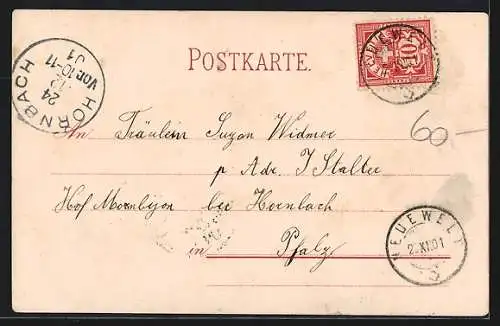 POSTKARTE.
HORNBACH
24
12
Vor.10-11
01
NEUEWELT
10
60 –
An Fräulein Suzon Widmer
p Adr. J Stalter
Hof Mombijon bei Hornbach
in Pfalz
NEUEWELT
2.XII.01